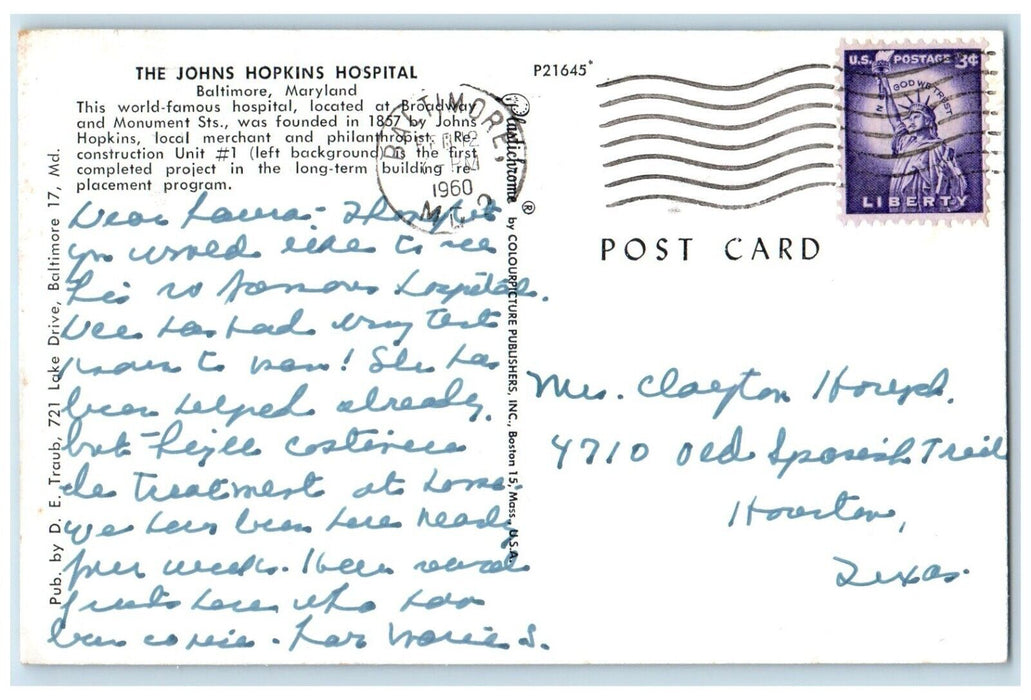 THE JOHNS HOPKINS HOSPITAL
Baltimore, Maryland
This world-famous hospital, located at Broadway
and Monument Sts., was founded in 1857 by Johns
Hopkins, local merchant and philanthropist. Re-
construction Unit #1 (left background) is the first
completed project in the long-term building re-
placement program.
Dear Laura - Thought
you would like to see
this so famous hospital.
Dee has had every test
known to man! She has
been helped already,
but they'll continue
the treatment at home.
We have been here nearly
four weeks. Have several
friends here who have
been so nice. Love Marie S.
Pub. by D. E. Traub, 721 Lake Drive, Baltimore 17, Md.
Plastichrome ® by COLOURPICTURE PUBLISHERS, INC., Boston 15, Mass., U.S.A.
P21645
BALTIMORE, MD. 2
12
PM
1960
U.S. POSTAGE 3¢
IN GOD WE TRUST
LIBERTY
POST CARD
Mrs. Clayton
4710 Old Spanish Trail
Houston,
Texas.